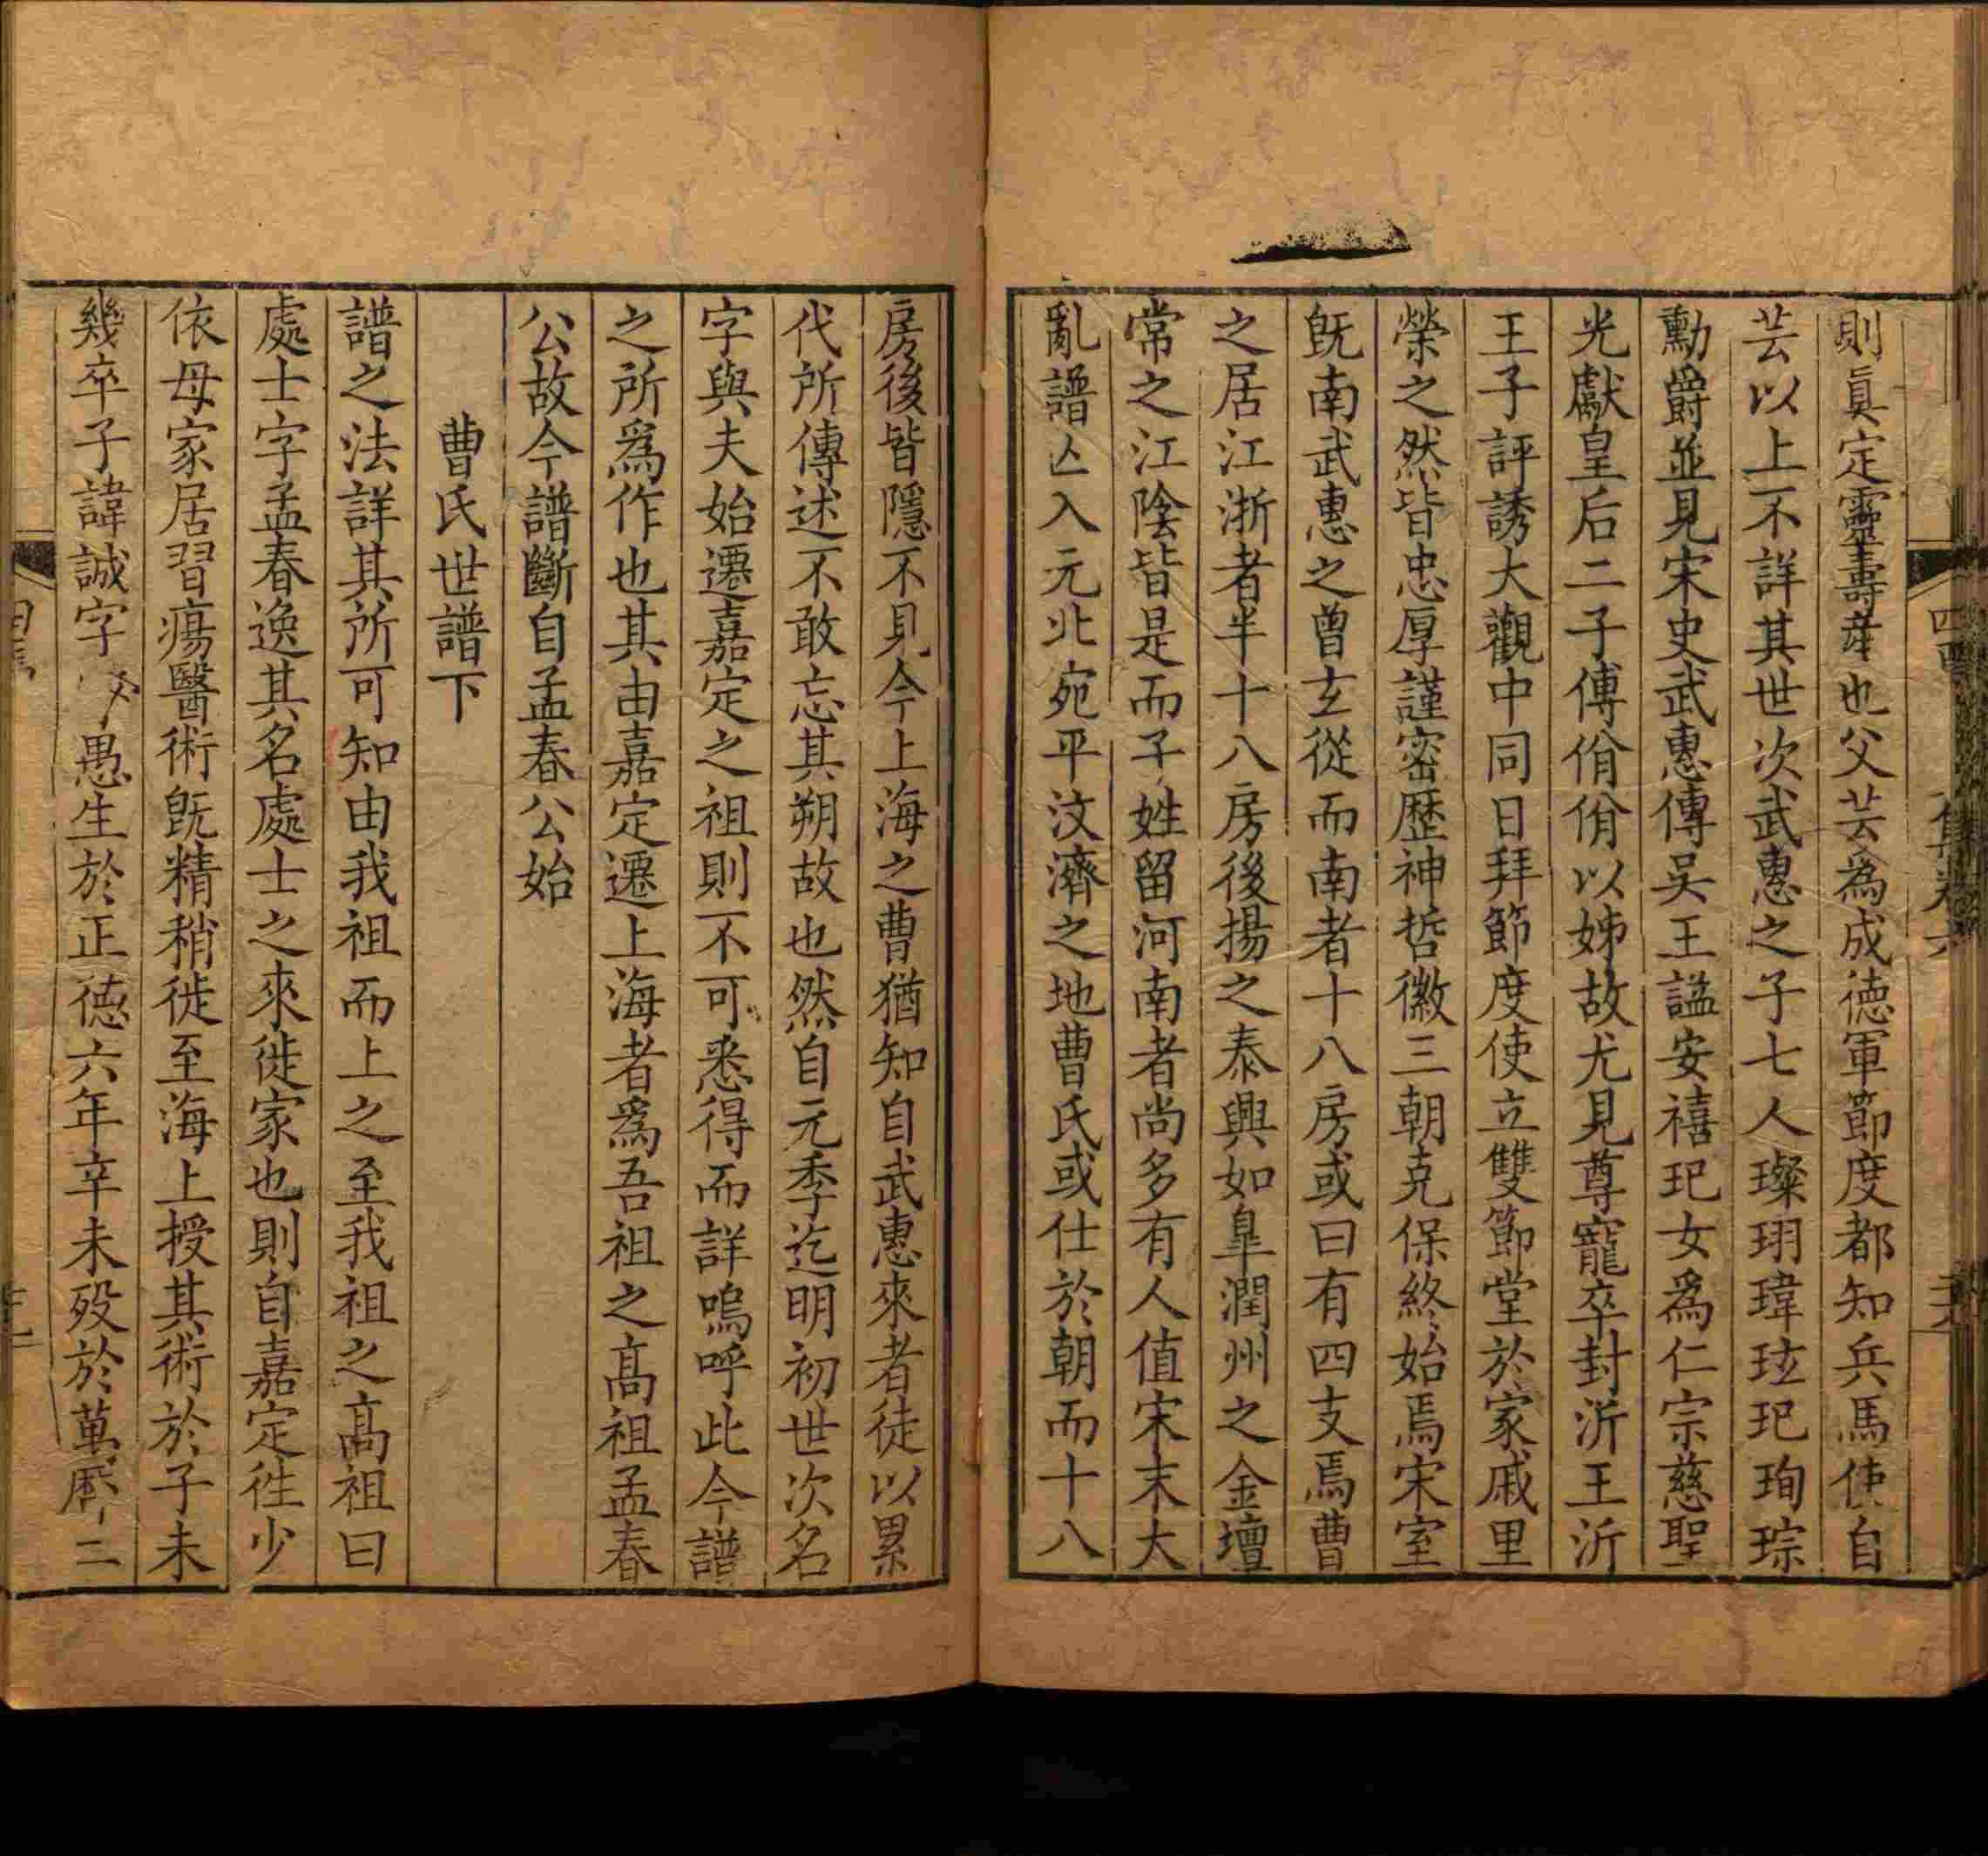 則眞定靈壽產也父芸爲成德軍節度都知兵馬使自
芸以上不詳其世次武惠之子七人璨珝瑋玹玘珣琮
勳爵並見宋史武惠傳吳王諡安禧玘女爲仁宗慈聖
光獻皇后二子傅佾佾以姊故尤見尊寵卒封沂王沂
王子評誘大觀中同日拜節度使立雙節堂於家戚里
榮之然皆忠厚謹密歷神哲徽三朝克保終始焉宋室
旣南武惠之曾玄從而南者十八房或曰有四支焉曹
之居江浙者半十八房後揚之泰興如皐潤州之金壇
常之江陰皆是而子姓留河南者尚多有人值宋末大
亂譜亾入元北宛平汶濟之地曹氏或仕於朝而十八
房後皆隱不見今上海之曹猶知自武惠來者徒以累
代所傳述不敢忘其朔故也然自元季迄明初世次名
字與夫始遷嘉定之祖則不可悉得而詳嗚呼此今譜
之所爲作也其由嘉定遷上海者爲吾祖之高祖孟春
公故今譜斷自孟春公始
曹氏世譜下
譜之法詳其所可知由我祖而上之至我祖之高祖曰
處士字孟春逸其名處士之來徙家也則自嘉定徃少
依母家居習瘍醫術旣精稍徙至海上授其術於子未
幾卒子諱誠字愚生於正德六年辛未歿於萬曆二